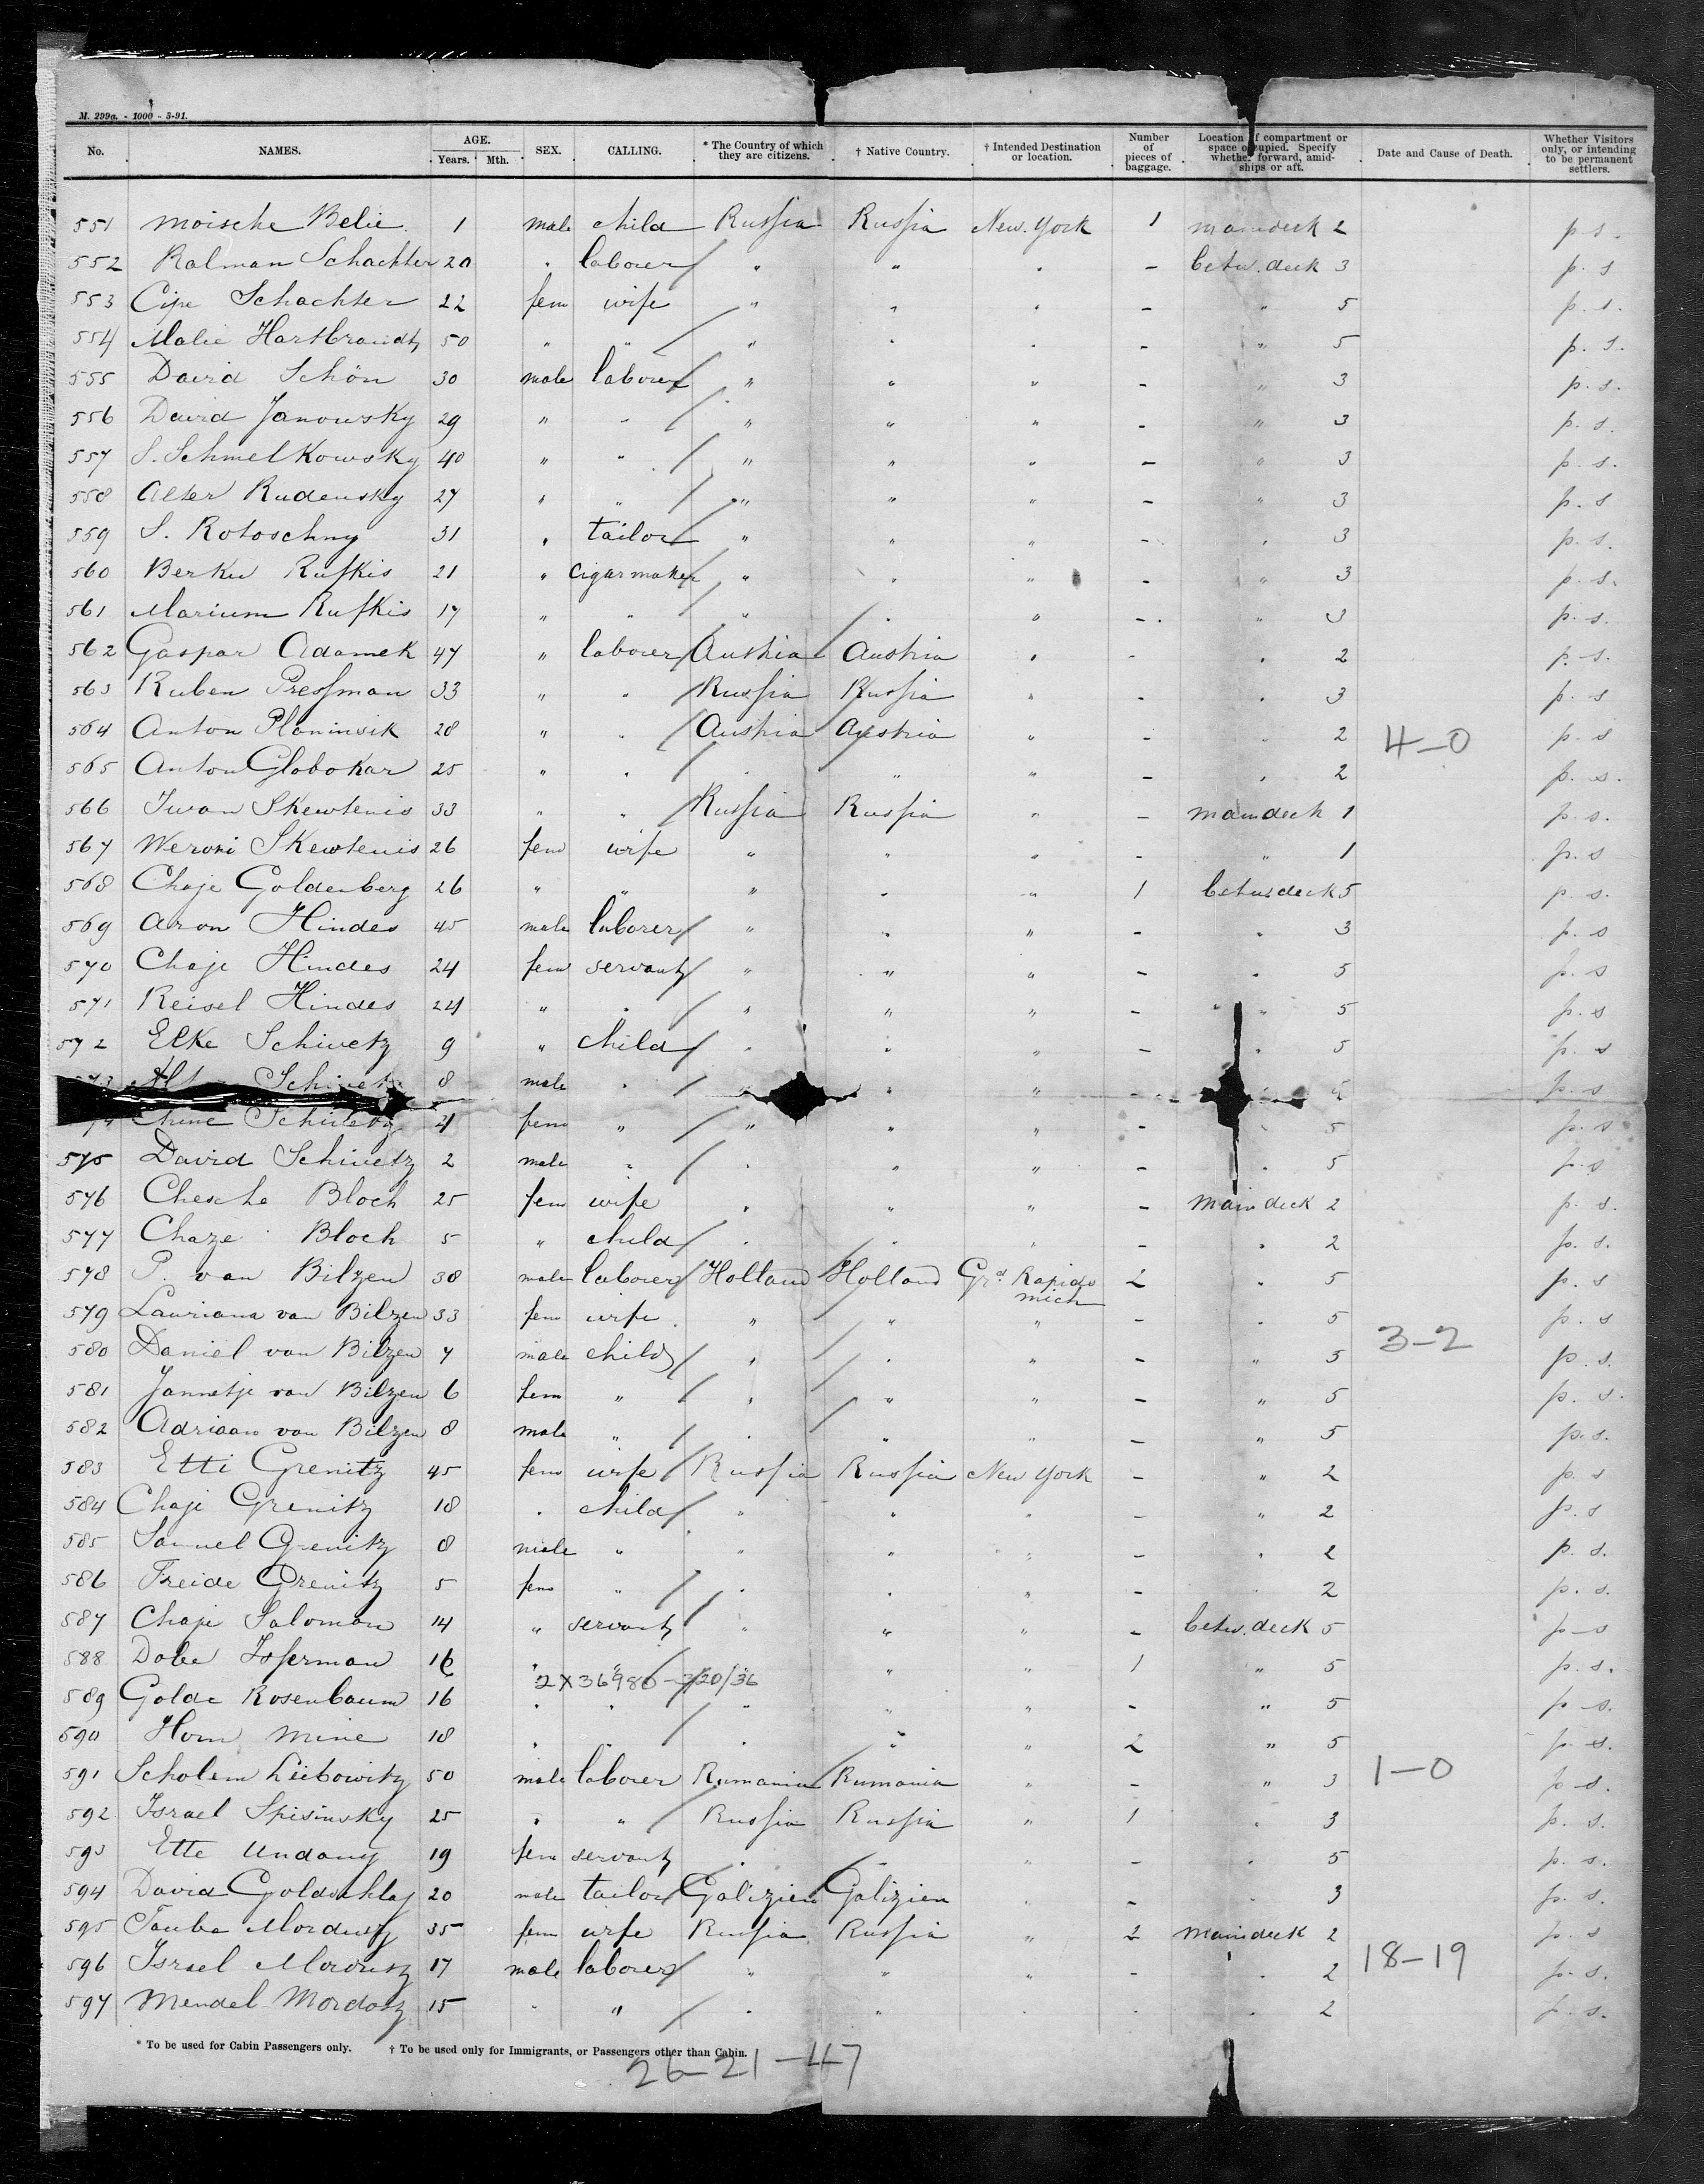 M. 299a. - 1000 - 3-91.
No. NAMES. AGE. Years. Mth. SEX. CALLING. * The Country of which they are citizens. † Native Country. † Intended Destination or location. Number of pieces of baggage. Location of compartment or space occupied. Specify whether forward, amidships or aft. Date and Cause of Death. Whether Visitors only, or intending to be permanent settlers.
551 Moische Belie 1 male child Russia Russia New York 1 maindeck 2 p. s.
552 Kalman Schachter 20 " laborer " " " - betw. deck 3 p. s
553 Cipe Schachter 22 fem wife " " " - " 5 p. s.
554 Malie Hartbrandt 50 " " " " " - " 5 p. s.
555 David Schön 30 male laborer " " " - " 3 p. s.
556 David Janowsky 29 " " " " " - " 3 p. s.
557 S. Schmelkowsky 40 " " " " " - " 3 p. s.
558 Alter Rudensky 27 " " " " " - " 3 p. s
559 S. Rotoschny 31 " tailor " " " - " 3 p. s.
560 Berku Rufkis 21 " cigar maker " " " - " 3 p. s.
561 Marium Rufkis 17 " " " " " - " 3 p. s.
562 Gaspar Adamek 47 " laborer Austria Austria " - " 2 p. s.
563 Ruben Pressman 33 " " Russia Russia " - " 3 p. s
564 Anton Planinsik 28 " " Austria Austria " - " 2 4-0 p. s
565 Anton Globokar 25 " " " " " - " 2 p. s.
566 Iwan Skewtenis 33 " " Russia Russia " - maindeck 1 p. s.
567 Weroni Skewtenis 26 fem wife " " " - " 1 p. s
568 Chaje Goldenberg 26 " " " " " 1 betw. deck 5 p. s.
569 Aron Hindes 45 male laborer " " " - " 3 p. s
570 Chaje Hindes 24 fem servant " " " - " 5 p. s
571 Reisel Hindes 24 " " " " " - " 5 p. s
572 Elke Schivetz 9 " child " " " - " 5 p. s
Schivetz 8 male " " " " - " p. s
Schivetz 4 fem " " " " - " 5 p. s
575 David Schivetz 2 male " " " " - " 5 p. s
576 Chesche Bloch 25 fem wife " " " - main deck 2 p. s.
577 Chaze Bloch 5 " child " " " - " 2 p. s.
578 P. van Bilzen 38 male laborer Holland Holland Grd. Rapids Mich 2 " 5 p. s
579 Lauriana van Bilzen 33 fem wife " " " - " 5 p. s
580 Daniel van Bilzen 7 male child " " " - " 5 3-2 p. s.
581 Jannetje van Bilzen 6 fem " " " " - " 5 p. s.
582 Adriaan van Bilzen 8 male " " " " - " 5 p. s.
583 Etti Grenitz 45 fem wife Russia Russia New York - " 2 p. s
584 Chaje Grenitz 18 " child " " " - " 2 p. s
585 Samuel Grenitz 8 male " " " " - " 2 p. s.
586 Freide Grenitz 5 fem " " " " - " 2 p. s.
587 Chaje Saloman 14 " servant " " " - betw. deck 5 p - s
588 Dobe Isserman 16 " " " " " 1 " 5 p. s.
2 X 36980 - 3/20/36
589 Golde Rosenbaum 16 " " " " " - " 5 p. s.
590 Horn Mine 18 " " " " " 2 " 5 p. s.
591 Scholem Leibowitz 50 male laborer Rumania Rumania " - " 3 1-0 p. s.
592 Israel Spisinsky 25 " " Russia Russia " 1 " 3 p. s.
593 Ette Undany 19 fem servant " " " - " 5 p. s.
594 David Goldschlag 20 male tailor Galizien Galizien " - " 3 p. s.
595 Taube Mordusz 35 fem wife Russia Russia " 2 maindeck 2 p. s
596 Israel Mordusz 17 male laborer " " " - " 2 18-19 p. s.
597 Mendel Mordosz 15 " " " " " - " 2 p. s.
* To be used for Cabin Passengers only. † To be used only for Immigrants, or Passengers other than Cabin.
26-21-47